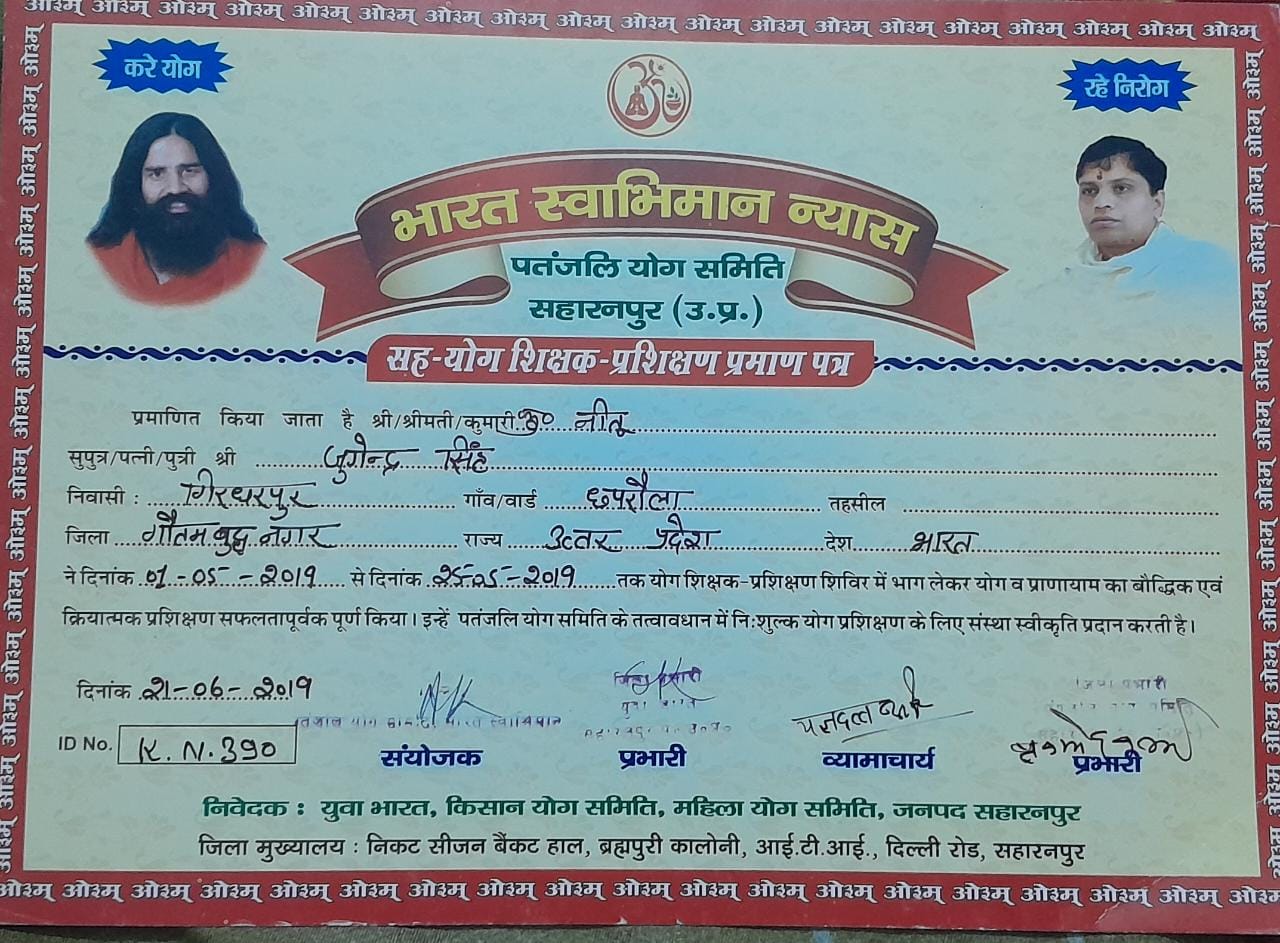 ओ३म् ओ३म् ओ३म् ओ३म् ओ३म् ओ३म् ओ३म् ओ३म् ओ३म् ओ३म् ओ३म् ओ३म् ओ३म् ओ३म् ओ३म् ओ३म् ओ३म् ओ३म्
करे योग
रहे निरोग
भारत स्वाभिमान न्यास
पतंजलि योग समिति
सहारनपुर (उ.प्र.)
सह-योग शिक्षक-प्रशिक्षण प्रमाण पत्र
प्रमाणित किया जाता है श्री/श्रीमती/कुमारी कु० नीतू
सुपुत्र/पत्नी/पुत्री श्री जुगेन्द्र सिंह
निवासी : गिरधरपुर गाँव/वार्ड छपरौला तहसील
जिला गौतम बुद्ध नगर राज्य उत्तर प्रदेश देश भारत
ने दिनांक 01-05-2019 से दिनांक 25-05-2019 तक योग शिक्षक-प्रशिक्षण शिविर में भाग लेकर योग व प्राणायाम का बौद्धिक एवं
क्रियात्मक प्रशिक्षण सफलतापूर्वक पूर्ण किया। इन्हें पतंजलि योग समिति के तत्वावधान में नि:शुल्क योग प्रशिक्षण के लिए संस्था स्वीकृति प्रदान करती है।
दिनांक 21-06-2019
ID No. K.N.390
संयोजक प्रभारी व्यामाचार्य प्रभारी
निवेदक : युवा भारत, किसान योग समिति, महिला योग समिति, जनपद सहारनपुर
जिला मुख्यालय : निकट सीजन बैंकट हाल, ब्रह्मपुरी कालोनी, आई.टी.आई., दिल्ली रोड, सहारनपुर
ओ३म् ओ३म् ओ३म् ओ३म् ओ३म् ओ३म् ओ३म् ओ३म् ओ३म् ओ३म् ओ३म् ओ३म् ओ३म् ओ३म् ओ३म् ओ३म् ओ३म् ओ३म् ओ३म्